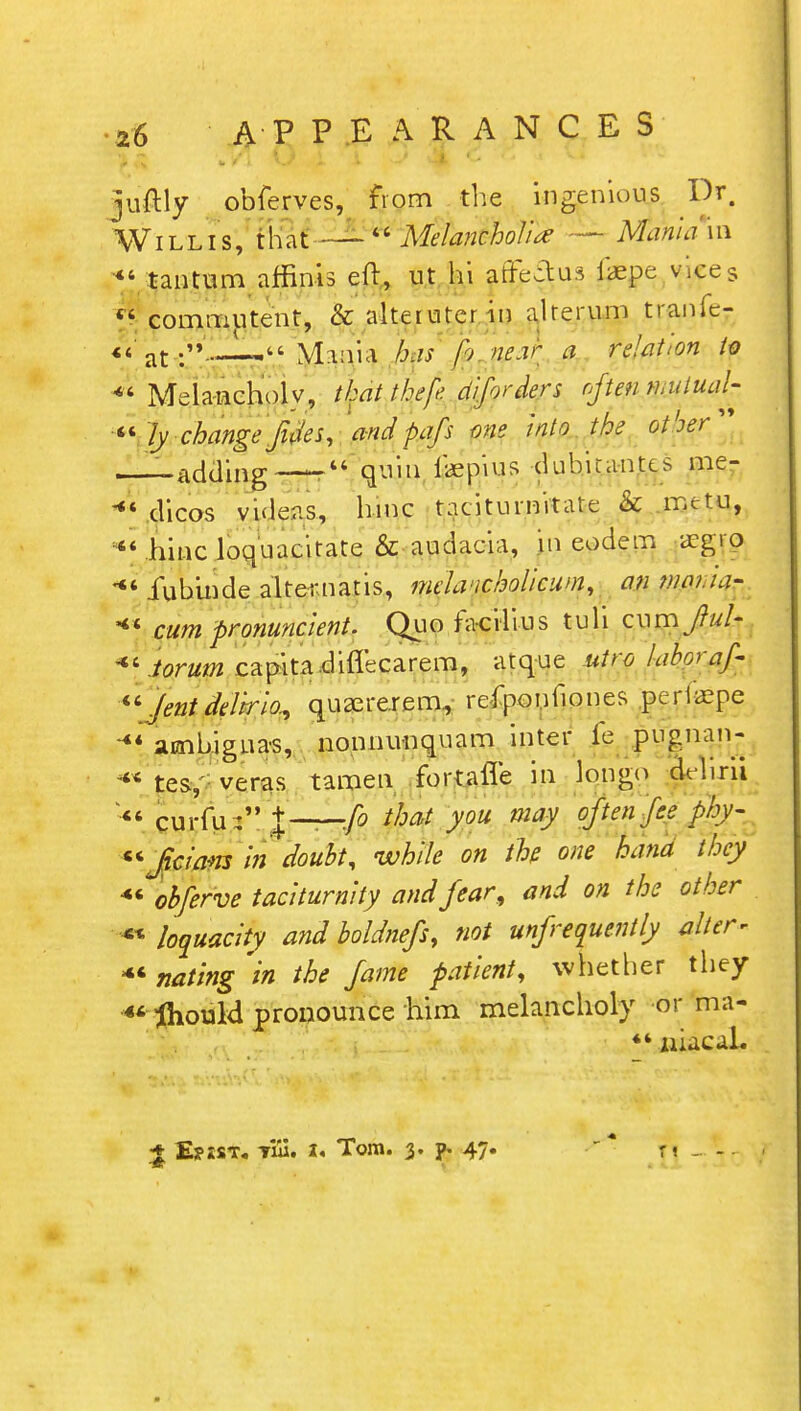 26 APPEARANCES
juſtly obſerves, from the ingenious Dr.
WILLIS, that —— “ Melancholiæ — Mania in
“ tantum affinis eſt, ut hi affectus ſæpe vices
“ commutent, & alteruter in alterum tranſe-
“ at:” —— “ Mania has ſo near a relation to
“ Melancholy, that theſe diſorders often mutual-
“ ly change ſides, and paſs one into the other”
—— adding —— “ quin ſæpius dubitantes me-
“ dicos videas, hinc taciturnitate & metu,
“ hinc loquacitate & audacia, in eodem ægro
“ ſubinde alternatis, melancholicum, an mania-
“ cum pronuncient. Quo facilius tuli cum ſtul-
“ torum capita diſſecarem, atque utro laboraſ-
“ ſent delirio, quærerem, reſponſiones perſæpe
“ ambiguas, nonnunquam inter ſe pugnan-
“ tes, veras tamen fortaſſe in longo delirii
“ curſu:” ‡ —— ſo that you may often ſee phy-
“ ſicians in doubt, while on the one hand they
“ obſerve taciturnity and fear, and on the other
“ loquacity and boldneſs, not unfrequently alter-
“ nating in the ſame patient, whether they
“ ſhould pronounce him melancholy or ma-
“ niacal.
‡ EPIST. viii. 1. Tom. 3. p. 47.